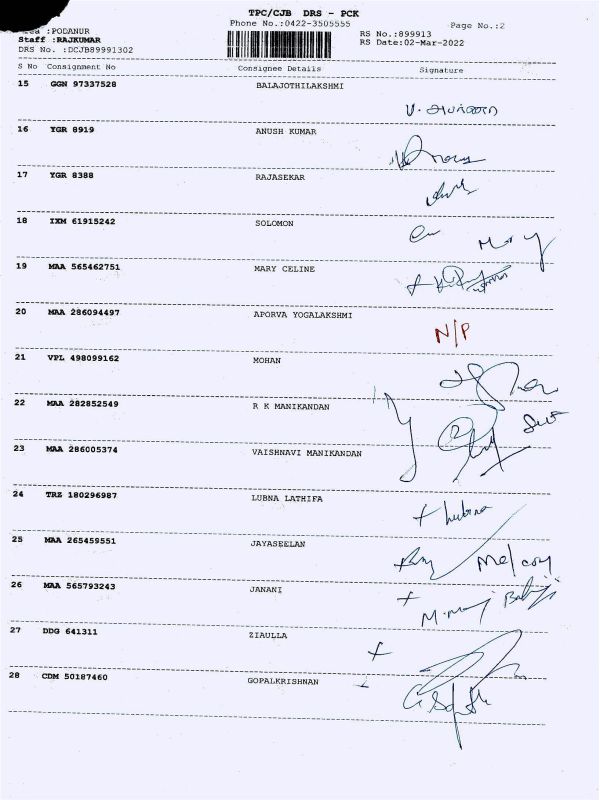 TPC/CJB DRS - PCK
Phone No.:0422-3505555
Page No.:2
Area :PODANUR
Staff :RAJKUMAR
DRS No. :DCJB89991302
RS No.:899913
RS Date:02-Mar-2022
S No Consignment No Consignee Details Signature
15 GGN 97337528 BALAJOTHILAKSHMI
16 YGR 8919 ANUSH KUMAR
17 YGR 8388 RAJASEKAR
18 IXM 61915242 SOLOMON
19 MAA 565462751 MARY CELINE
20 MAA 286094497 APORVA YOGALAKSHMI
N/P
21 VPL 498099162 MOHAN
22 MAA 282852549 R K MANIKANDAN
23 MAA 286005374 VAISHNAVI MANIKANDAN
24 TRZ 180296987 LUBNA LATHIFA
Lubna
25 MAA 265459551 JAYASEELAN
26 MAA 565793243 JANANI
27 DDG 641311 ZIAULLA
28 CDM 50187460 GOPALKRISHNAN